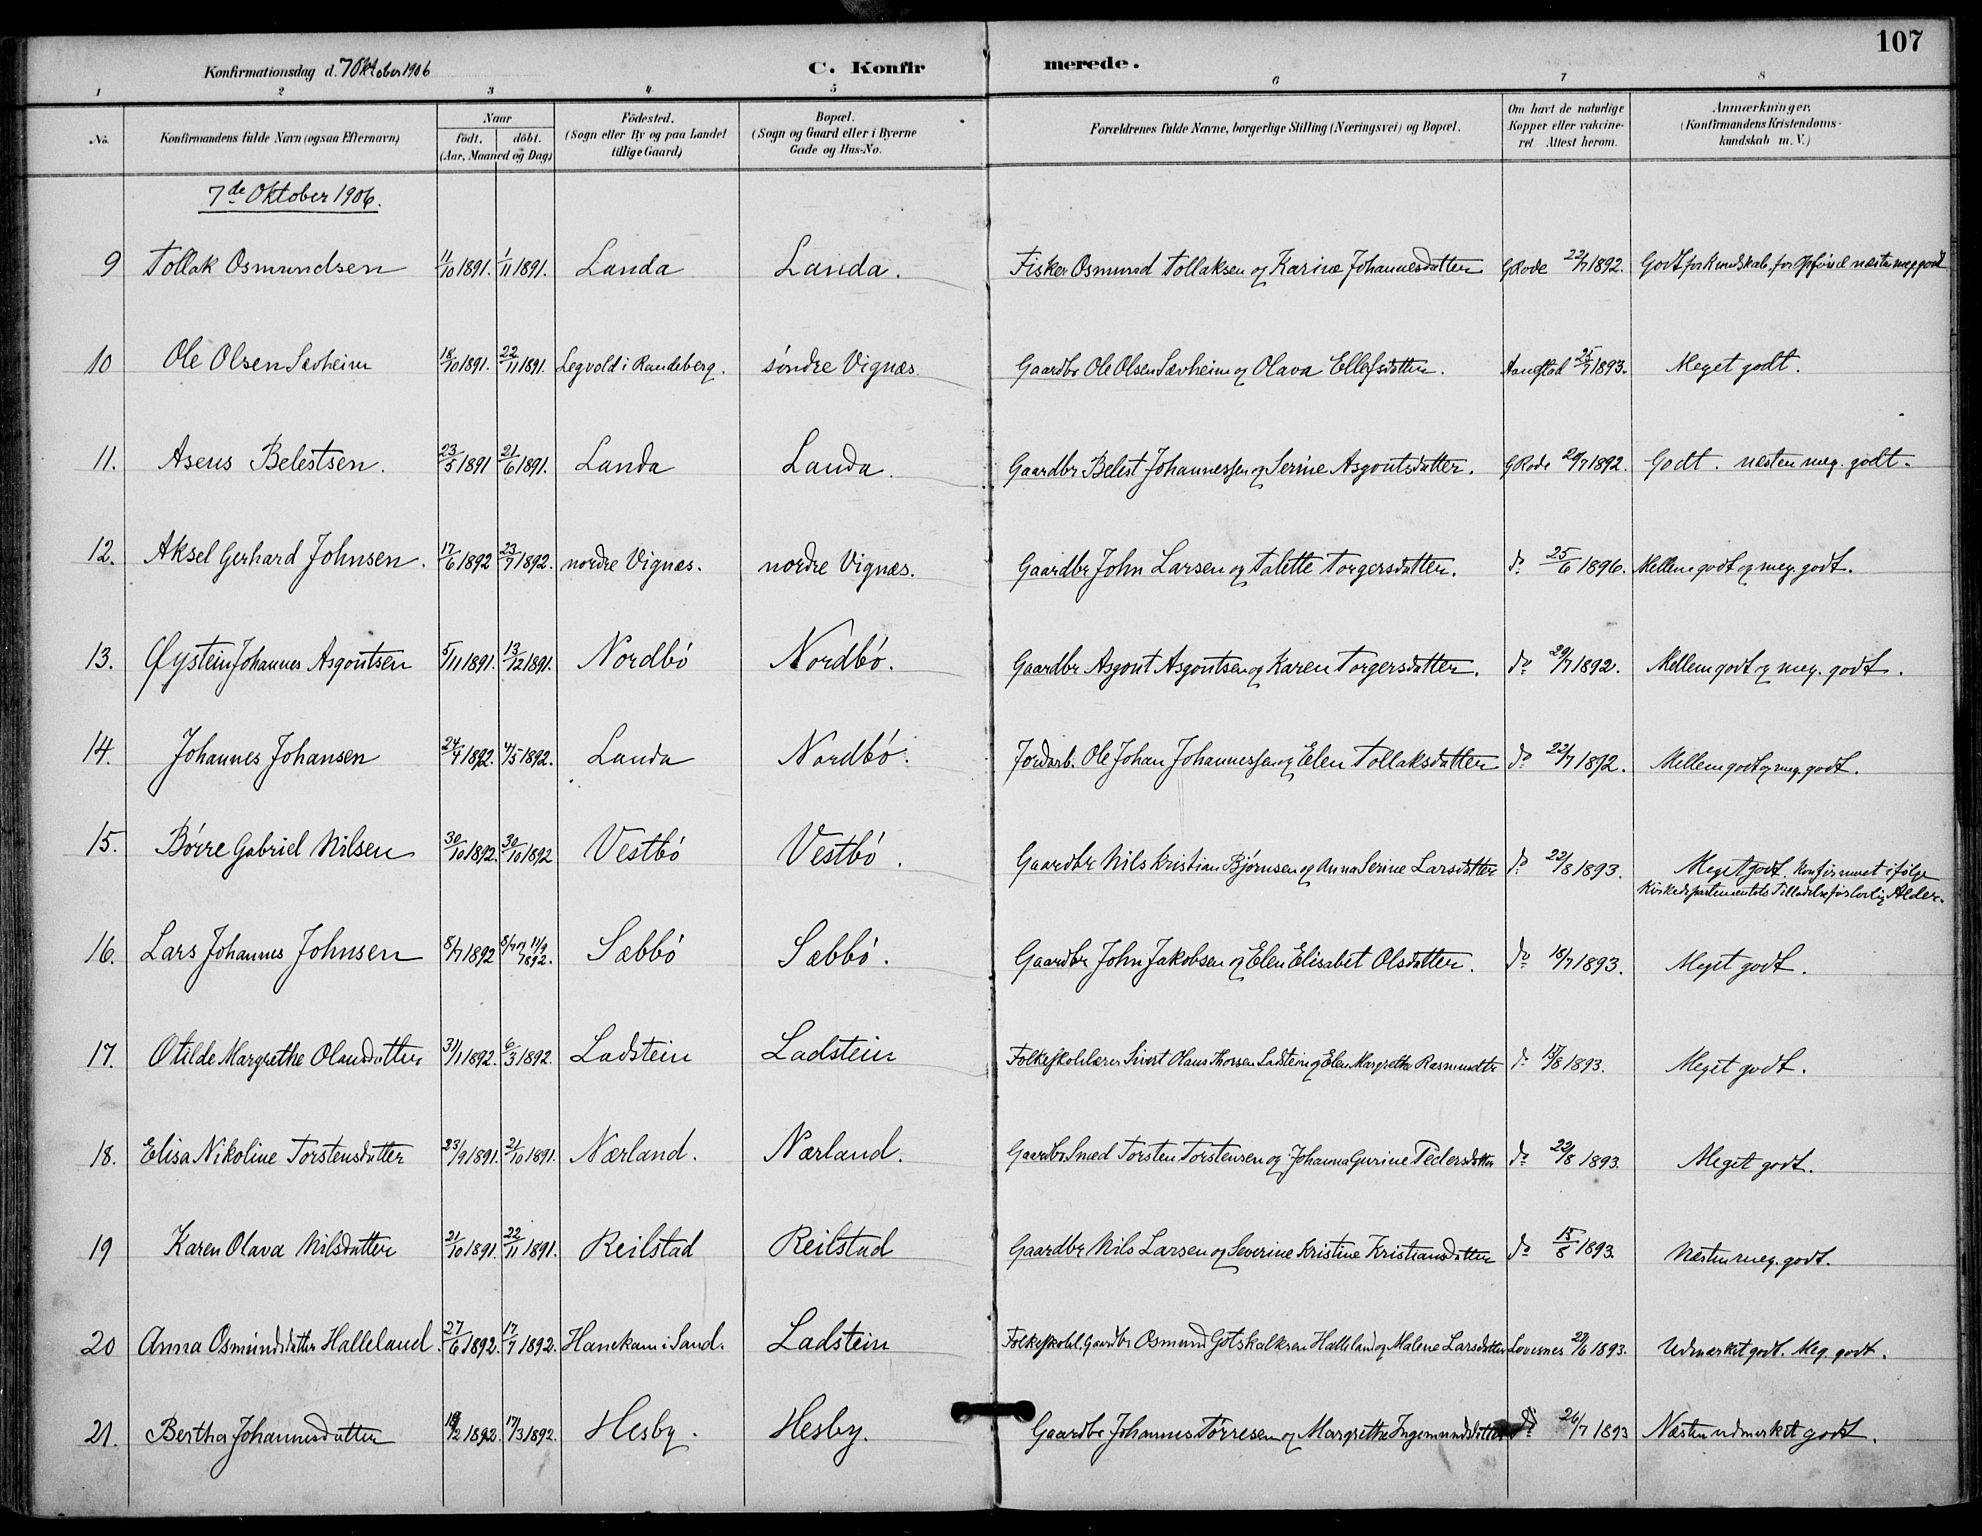 107
Konfirmationsdag d. 7 Oktober 1906 C. Konfirmerede.
1 2 3 4 5 6 7 8
No. Konfirmandens fulde Navn (ogsaa Efternavn) Naar født, døbt. (Aar, Maaned og Dag) Fødested. (Sogn eller By og paa Landet tillige Gaard) Bopæl. (Sogn og Gaard eller i Byerne Gade og Hus-No. Forældrenes fulde Navne, borgerlige Stilling (Næringsvei) og Bopæl. Om havt de naturlige Kopper eller vakcineret. Attest herom. Anmærkninger. (Konfirmandens Kristendomskundskab m. V.)
7de Oktober 1906.
9 Tollak Osmundsen 11/10 1891. 1/11 1891. Landa Landa. Fisker Osmund Tollaksen og Karine Johannesdatter G Rode 22/7 1892. Godt for Kundskab, for Opførsel næsten meg. godt
10 Ole Olsen Sævheim 18/10 1891. 22/11 1891. Legvold i Randeberg. søndre Vignæs Gaardbr Ole Olsen Sævheim og Olava Ellefsdatter. 25/7 1893. Meget godt.
11. Asens Belestsen. 23/5 1891 21/6 1891. Landa Landa. Gaardbr Belest Johannessen og Serine Asgoutsdatter. G Rode 20/7 1892. Godt. næsten meg. godt.
12. Aksel Gerhard Johnsen. 17/6 1892 23/7 1892. nordre Vignæs. nordre Vignæs. Gaardbr John Larsen og Talette Torgersdatter. do 25/6 1896. Mellem godt og meg. godt.
13. Øystein Johannes Asgoutsen 5/11 1891. 13/12 1891. Nordbø Nordbø. Gaardbr Asgout Asgoutsen og Karen Torgersdatter. do 20/7 1892. Mellem godt og meg. godt.
14. Johannes Johansen 24/4 1892. 4/5 1892. Landa Nordbø. Jordarb. Ole Johan Johannessen og Elen Tollaksdatter do 22/7 1892. Mellem godt og meg. godt.
15. Børre Gabriel Nilsen 30/10 1892. 30/10 1892 Vestbø Vestbø. Gaardbr Nils Kristian Bjørnsen og Anna Serine Larsdatter do 22/8 1893. Meget godt. Konfirmeret ifølge
Kirkedepartementets Tilladelse før lovlig Alder.
16. Lars Johannes Johnsen 8/7 1892 8/7 og 11/9 1892. Sæbbø Sæbbø. Gaardbr John Jakobsen og Elen Elisabet Olsdatter. do 18/7 1893. Meget godt.
17. Otilde Margrethe Olausdatter 31/1 1892. 6/3 1892. Ladstein Ladstein Folkeskolelærer Sivert Olaus Thorsen Ladstein og Elen Margrethe Rasmusdtr do 15/8 1893. Meget godt.
18. Elisa Nikoline Torstensdatter 23/9 1891. 21/10 1891. Nærland. Nærland. Gaardbr Smed Torsten Torstensen og Johanna Gurine Pedersdatter do 22/8 1893. Meget godt.
19 Karen Olava Nilsdatter 21/10 1891. 22/11 1891. Reilstad Reilstad Gaardbr Nils Larsen og Severine Kristine Kristiansdatter do 15/8 1893. Næsten meg. godt.
20 Anna Osmundsdatter Halleland. 27/6 1892. 17/7 1892. Hanekam i Sand. Ladstein Folkeskol. Gaardbr Osmund Gotskalksen Halleland og Malene Larsdatter Lovesnes 29/6 1893. Udmærket godt. Meg. godt.
21. Bertha Johannesdatter 18/2 1892. 17/3 1892. Hesby. Hesby. Gaardbr Johannes Tørresen og Margrethe Ingemundsdatter do 26/7 1893 Næsten udmerket godt.